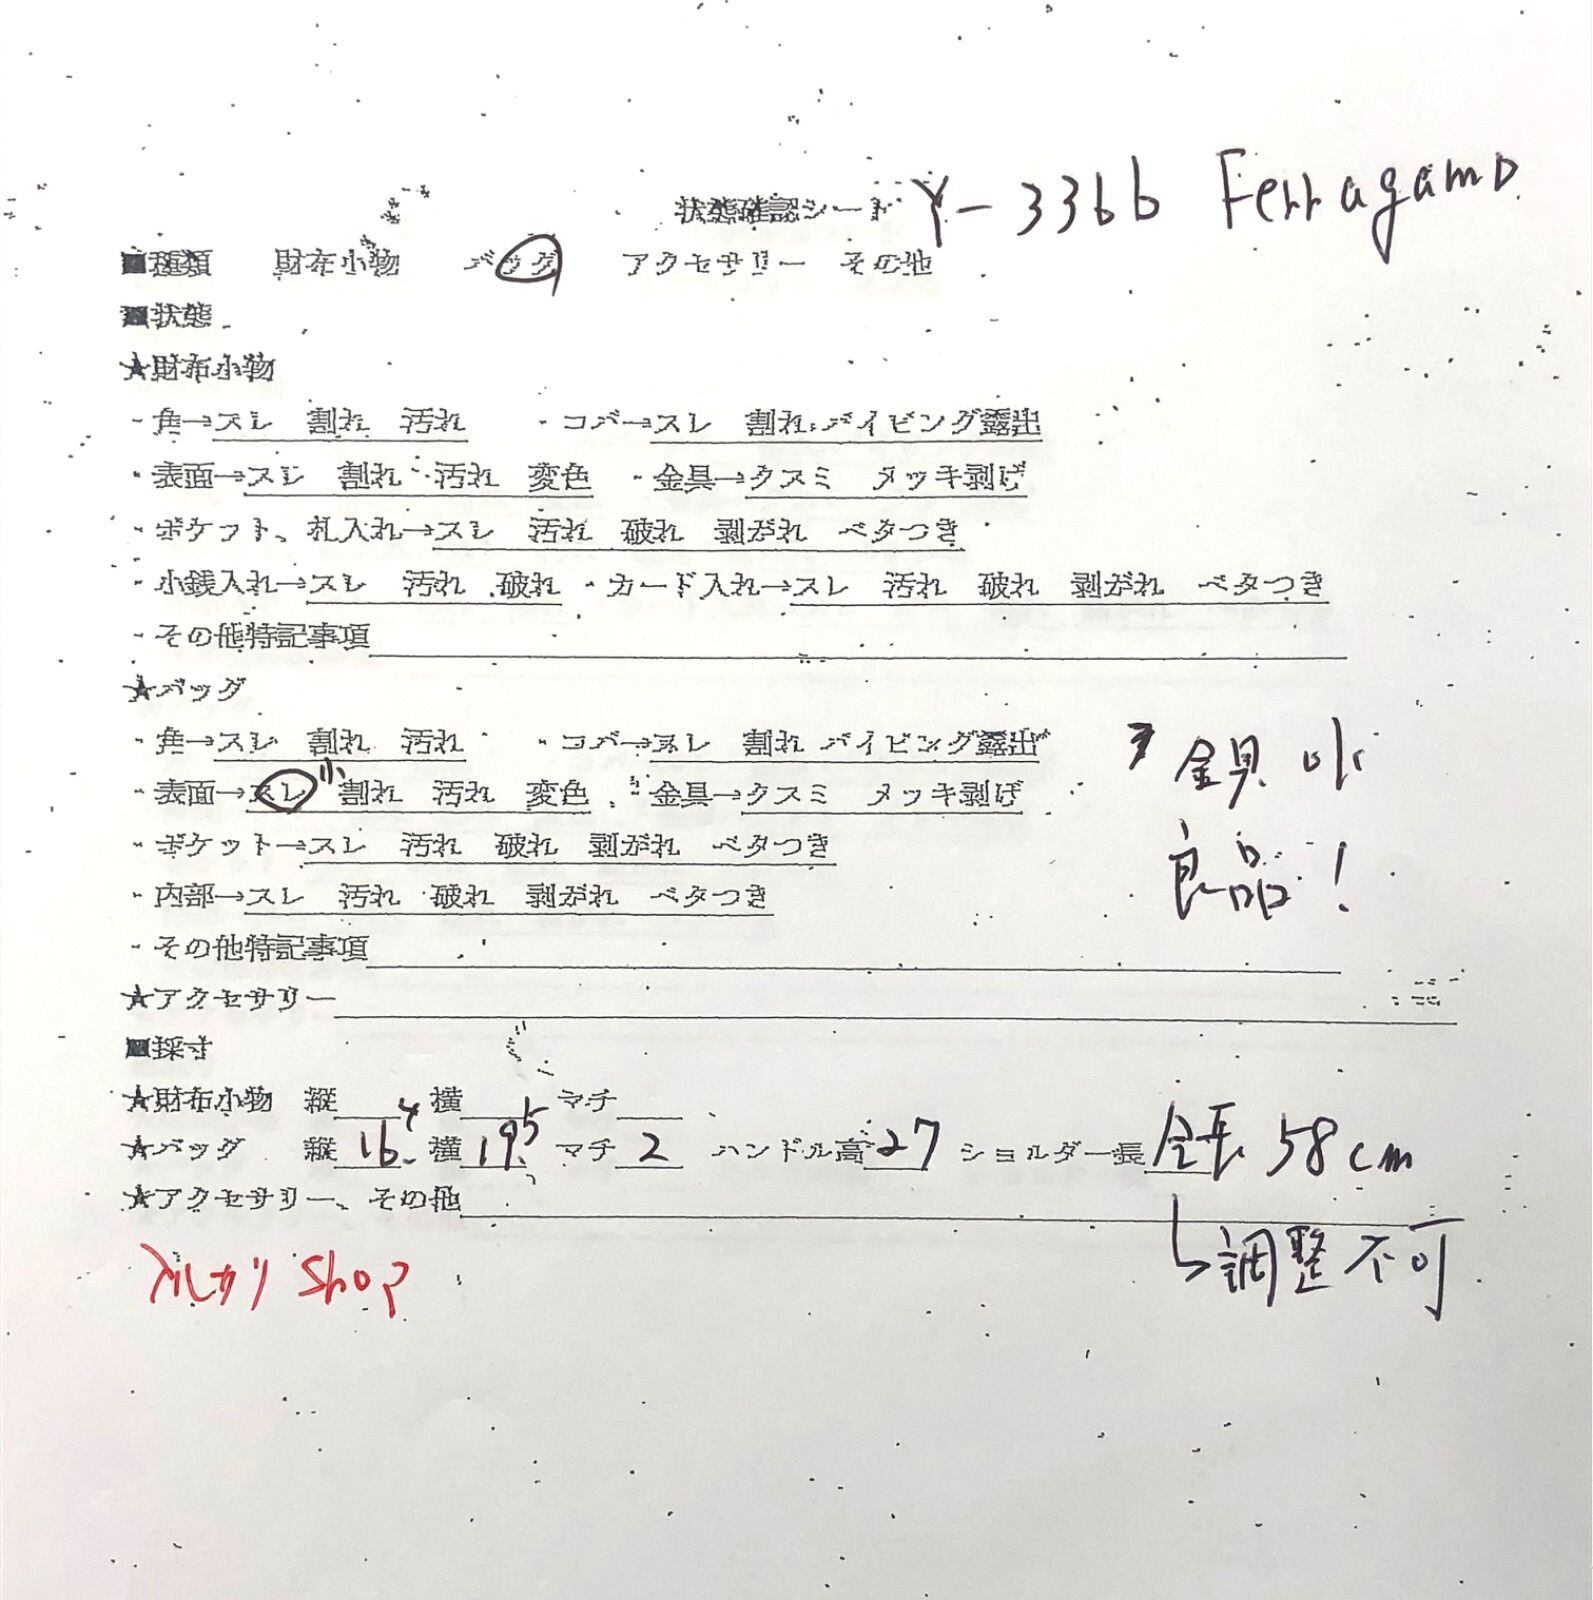 状態確認シート Y-3366 Ferragamo
■種類 財布小物 バッグ アクセサリー その他
■状態
★財布小物
・角→スレ 割れ 汚れ ・コバ→スレ 割れ パイピング露出
・表面→スレ 割れ 汚れ 変色 ・金具→クスミ メッキ剥げ
・ポケット、札入れ→スレ 汚れ 破れ 剥がれ ベタつき
・小銭入れ→スレ 汚れ 破れ ・カード入れ→スレ 汚れ 破れ 剥がれ ベタつき
・その他特記事項
★バッグ
・角→スレ 割れ 汚れ ・コバ→スレ 割れ パイピング露出
・表面→スレ 小 割れ 汚れ 変色 ・金具→クスミ メッキ剥げ
金具 小
・ポケット→スレ 汚れ 破れ 剥がれ ベタつき
良品!
・内部→スレ 汚れ 破れ 剥がれ ベタつき
・その他特記事項
★アクセサリー
■採寸
★財布小物 縦 横 マチ
★バッグ 縦 16.4 横 19.5 マチ 2 ハンドル高 27 ショルダー長 全長 58cm
★アクセサリー、その他
↳調整不可
メルカリ Shop